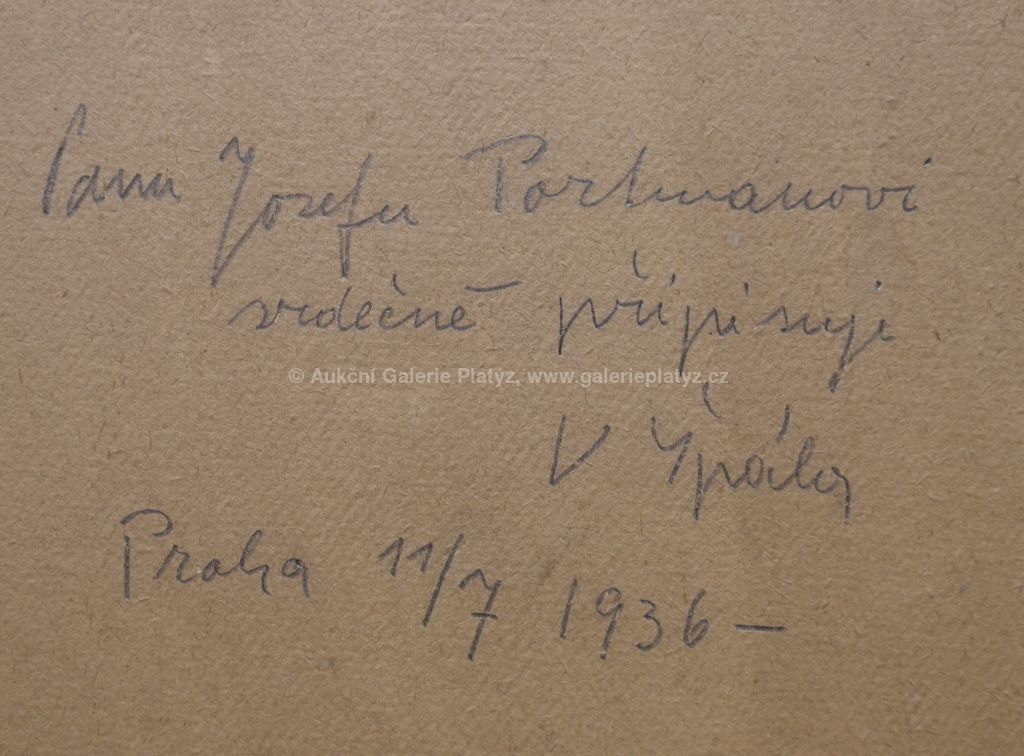 Panu Josefu Portmanovi
srdečně připisuji
© Aukční Galerie Platýz, www.galerieplatyz.cz
V Špála
Praha 11/7 1936 –